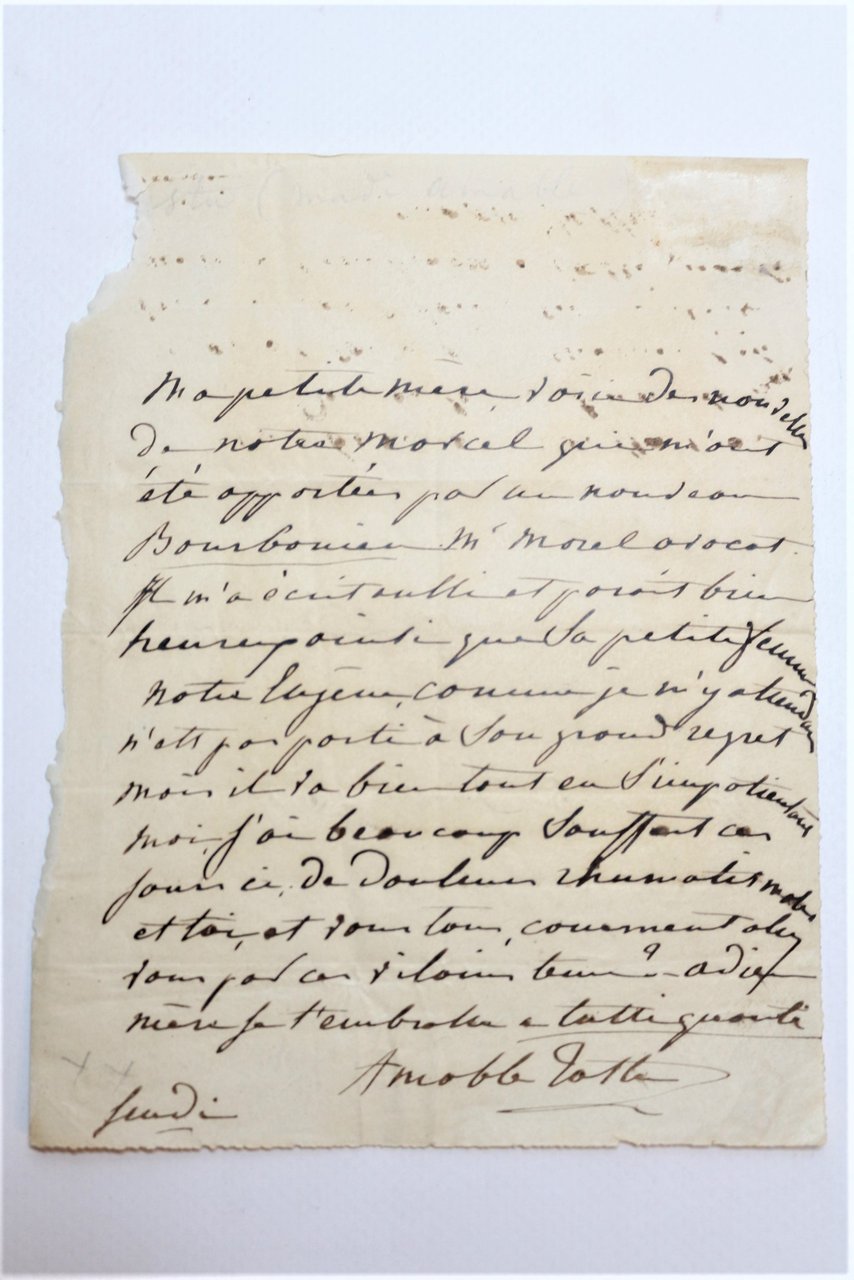 Ma petite mère voici des nouvelles
de notre Marcel qui m'ont
été apportées par un nouveau
Bourbonien Mr Morel avocat.
Il m'a écrit aussi et parait bien
heureux ainsi que sa petite femme
notre Eugène, comme je m'y attendais
n'est pas parti à son grand regret
mais il va bien tout en s'impatientant
moi, j'ai beaucoup souffert ces
jours ci, de douleurs rhumatismales
et toi, et vous tous, comment allez
vous par ces vilains tems ? - adieu
mère je t'embrasse e tutti quanti
Amable Tastu
lundi